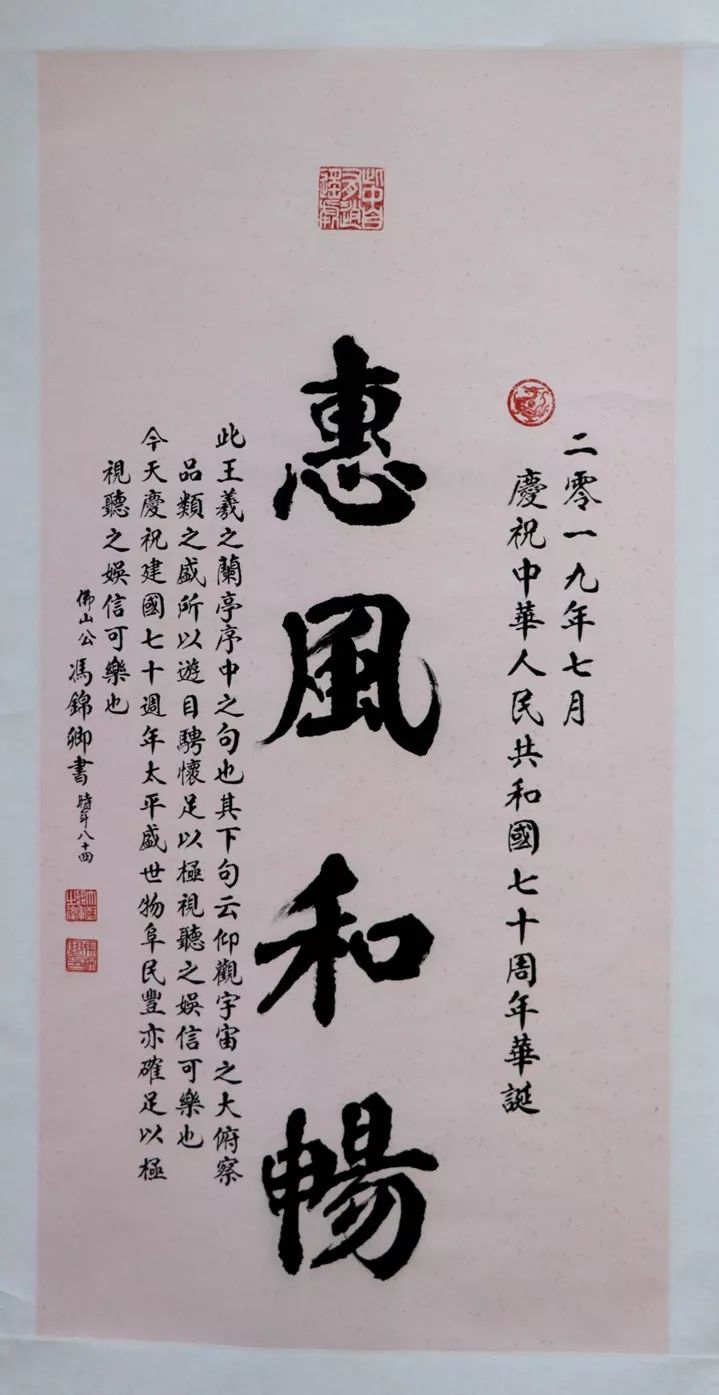 二零一九年七月
慶祝中華人民共和國七十周年華誕
惠風和暢
此王羲之蘭亭序中之句也其下句云仰觀宇宙之大俯察
品類之盛所以遊目騁懷足以極視聽之娛信可樂也
今天慶祝建國七十週年太平盛世物阜民豐亦確足以極
視聽之娛信可樂也
佛山公馮錦卿書時年八十四